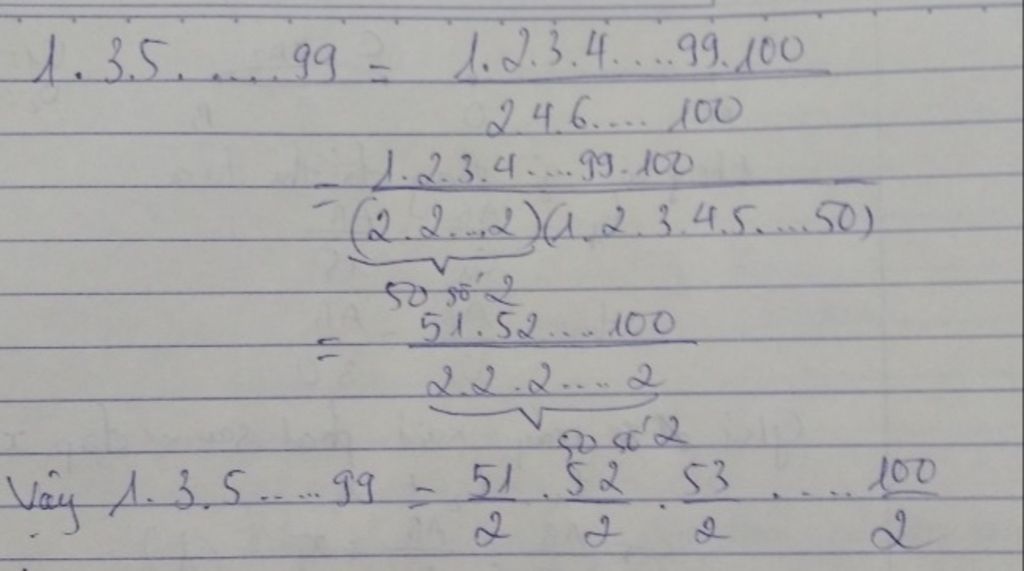 1.3.5.....99 = 1.2.3.4....99.100
2.4.6.... 100
= 1.2.3.4....99.100
(2.2...2)(1.2.3.4.5....50)
50 số 2
= 51.52....100
2.2.2.... 2
50 số 2
Vậy 1.3.5.....99 = 51/2 . 52/2 . 53/2 ..... 100/2